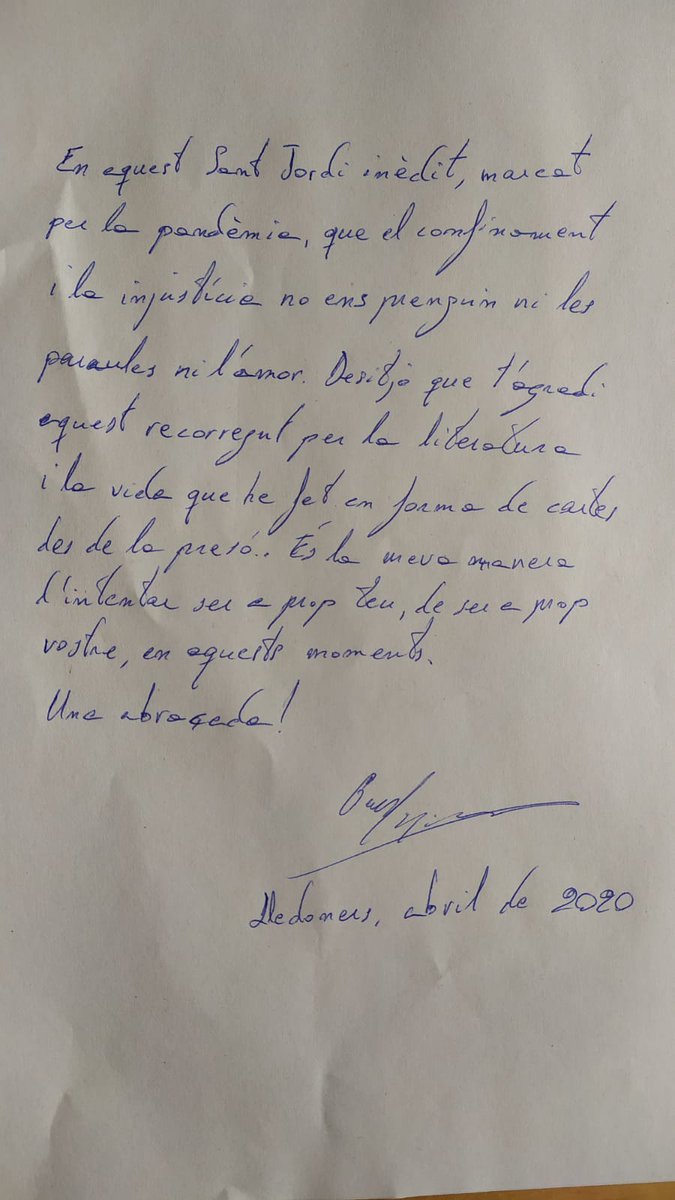 En aquest Sant Jordi inèdit, marcat
per la pandèmia, que el confinament
i la injustícia no ens prenguin ni les
paraules ni l'amor. Desitjo que t'agradi
aquest recorregut per la literatura
i la vida que he fet en forma de cartes
des de la presó. És la meva manera
d'intentar ser a prop teu, de ser a prop
vostre, en aquests moments.
Una abraçada!
Lledoners, abril de 2020